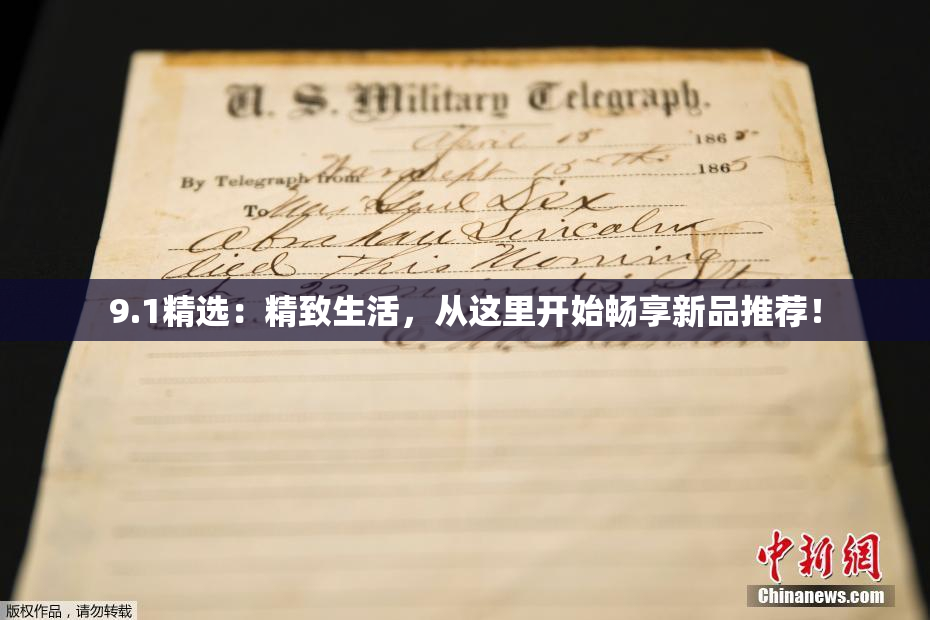 U. S. Military Telegraph.
April 15 1865
By Telegraph from War Dept 15th 1865
To Maj Genl Dix
Abraham Lincoln
died This Morning
22 minutes after
9.1精选：精致生活，从这里开始畅享新品推荐！
E. M. Stanton
中新網
Chinanews.com
版权作品，请勿转载